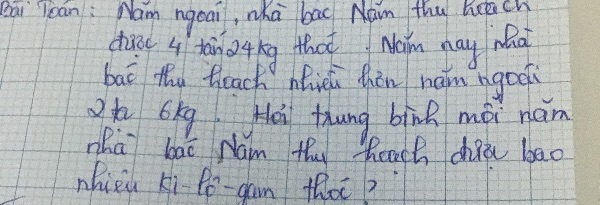 Bài Toán: Năm ngoái, nhà bác Năm thu hoạch
được 4 tấn 24 kg thóc. Năm nay nhà
bác thu hoạch nhiều hơn năm ngoái
2 tạ 6kg. Hỏi trung bình mỗi năm
nhà bác Năm thu hoạch được bao
nhiêu ki-lô-gam thóc?